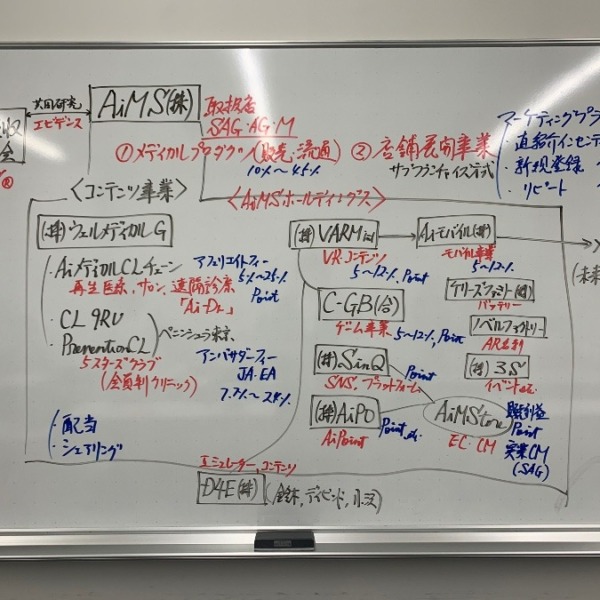 共同研究
エビデンス
AiMS(株)
取扱店
SAG・AG・M
①メディカルプロダクツ(販売、流通)
10%〜45%
②店舗展開事業
サブフランチャイズ方式
マーケティングプラ
・直紹介インセンテ
・新規登録
・リピート
〈コンテンツ事業〉
〈AiMSホールディングス〉
(株)ウェルメディカルG
・AiメディカルCLチェーン
再生医療、サロン、遠隔診療
「Ai-Dr」
アフェリエイトフィー
5%〜25%
Point
・CL 9RU
PreventionCL
ペニンシュラ東京
5スターズクラブ
(会員制クリニック)
アンバサダーフィー
JA・EA
7.2%〜24%
・配当
・シェアリング
(株)VARMind
VRコンテンツ
5〜12%, Point
Aiモバイル(株)
モバイル事業
5〜12%
C-GB(合)
ゲーム事業
5〜12%, Point
ケリーズファミリー(株)
バッテリー
ノーベルファクトリー
AR名刺
(株)SinQ
SNS、プラットフォーム
Point
(株)3S
イベントetc.
(株)AiPO
AiPoint
Point, etc.
AiMStore
EC・CM
Point
実業CM
(SAG)
エミュレーター、コンテンツ
D4E(株)
(未来